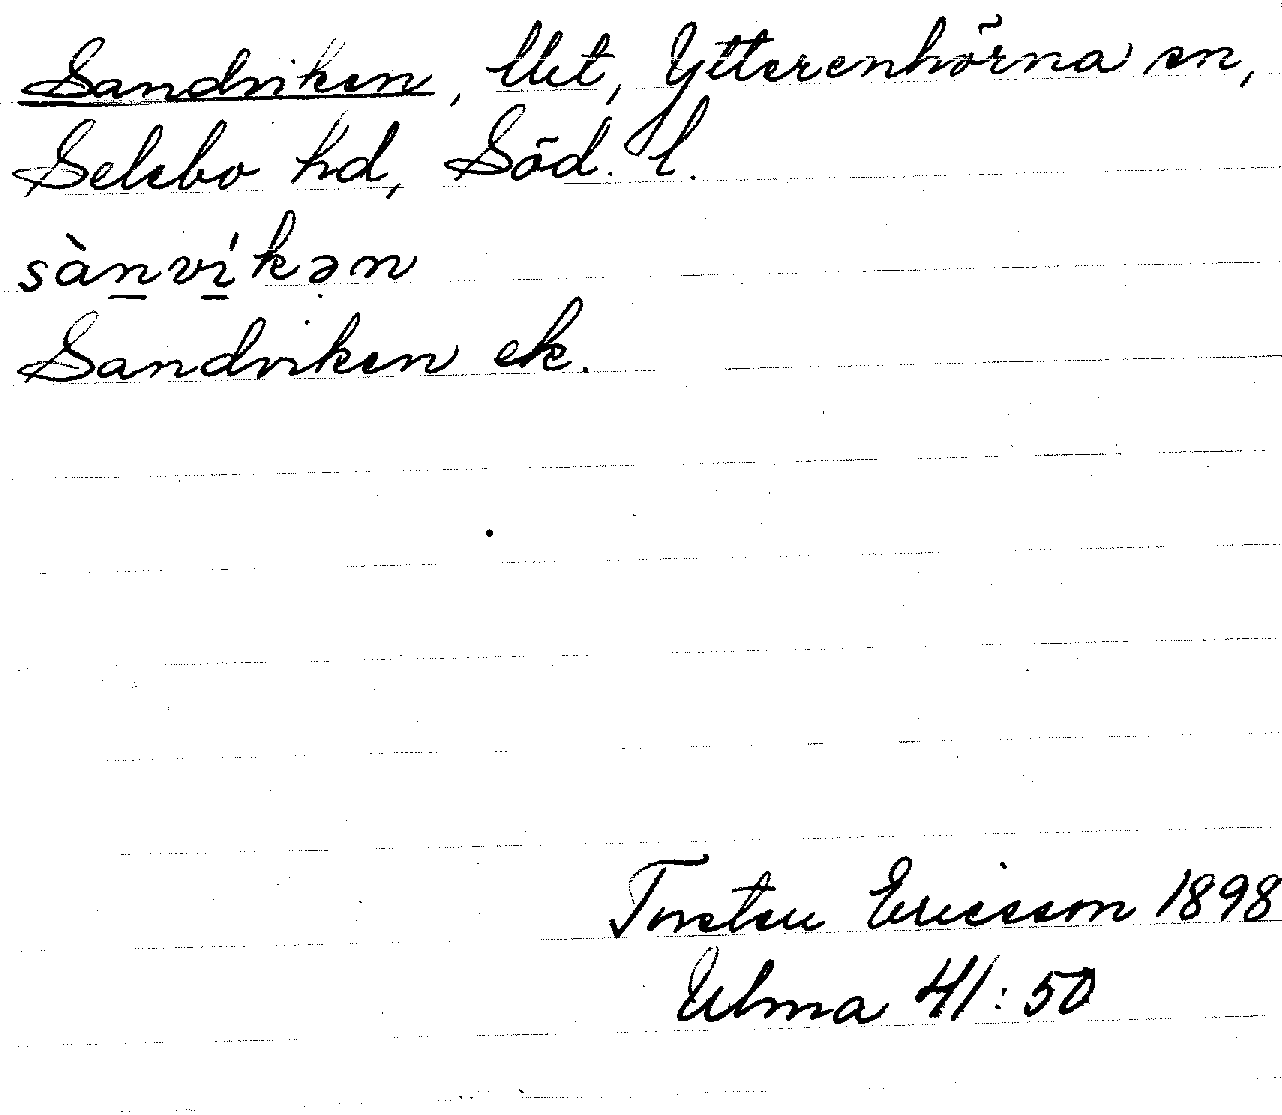 Sandviken, Utjt, Ytterenhörna sn,
Selebo hd, Söd. l.
sànvíkən
Sandviken ek.
Torsten Ericsson 1898
Ulma 41:50